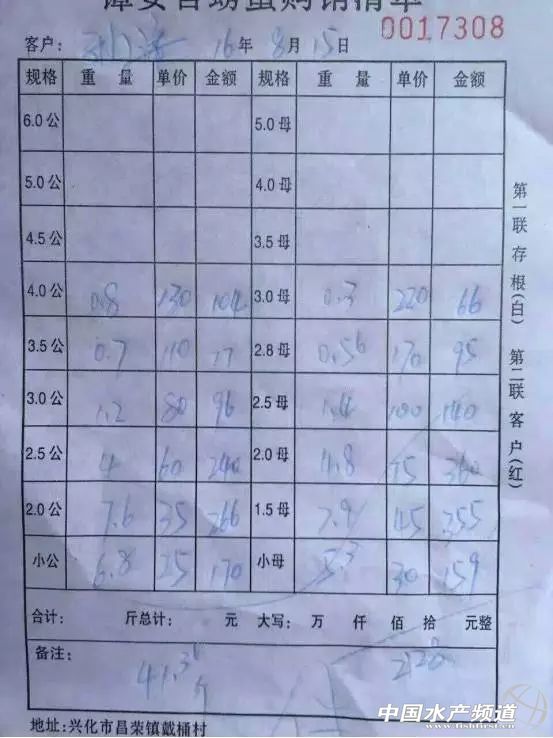 螃蟹购销清单
0017308
客户: 16年8月15日
规格 重量 单价 金额 规格 重量 单价 金额
6.0公 5.0母
5.0公 4.0母
4.5公 3.5母
4.0公 0.8 130 104 3.0母 0.3 220 66
3.5公 0.7 110 77 2.8母 0.56 170 95
3.0公 1.2 80 96 2.5母 1.4 100 140
2.5公 4 60 240 2.0母 4.8 75 360
2.0公 7.6 35 266 1.5母 7.9 45 355
小公 6.8 25 170 小母 5.3 30 159
合计: 斤总计: 元 大写: 万 仟 佰 拾 元整
备注: 斤 2128
地址:兴化市昌荣镇戴桶村
第一联存根(白) 第二联客户(红)
中国水产频道
www.fishfirst.cn